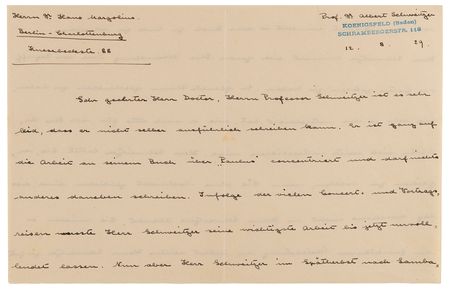 Herrn Dr. Hans Margolius.
Prof. Dr Albert Schweitzer
Berlin - Charlottenburg
KOENIGSFELD (Baden)
SCHRAMBERGERSTR. 118
Knesebeckstr. 88
12. 8. 29.
Sehr geehrter Herr Doctor, Herrn Professor Schweitzer ist es sehr
leid, dass er nicht selber ausführlich schreiben kann. Er ist ganz auf
die Arbeit an seinem Buch über „Paulus" concentriert und darf nichts
anderes daneben schreiben. Infolge der vielen Concert- und Vortrags,
reisen musste Herr Schweitzer seine wichtigste Arbeit bis jetzt unvoll,
lendet lassen. Nun aber Herr Schweitzer im Spätherbst nach Lamba,